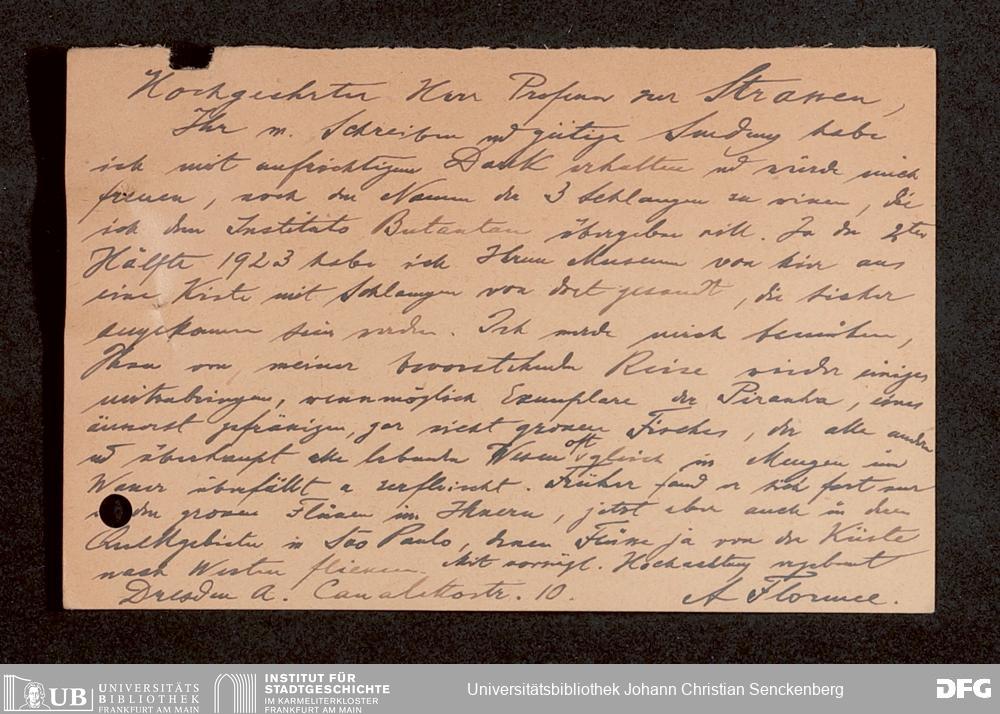 Hochgeehrter Herr Professor zur Strassen,
Ihr w. Schreiben und gütige Sendung habe
ich mit aufrichtigem Dank erhalten und würde mich
freuen, noch den Namen der 3 Schlangen zu wissen, die
ich dem Instituto Butantan übergeben will. In der 2ten
Hälfte 1923 habe ich Ihrem Museum von hier aus
eine Kiste mit Schlangen von dort gesandt, die sicher
angekommen sein werden. Ich werde mich bemühen,
Ihnen von meiner bevorstehenden Reise wieder einiges
mitzubringen, wenn möglich Exemplare der Piranha, eines
äusserst gefrässigen, gar nicht grossen Fisches, der alle andern
und überhaupt alle lebenden Wesen oft gleich in Mengen im
Wasser überfällt u zerfleischt. Früher fand er sich fast nur
in den grossen Flüssen im Innern, jetzt aber auch in den
Quellgebieten in São Paulo, deren Flüsse ja von der Küste
nach Westen fliessen. Mit vorzügl. Hochachtung ergebenst
Dresden A. Canalettostr. 10. A Florence.
UB UNIVERSITÄTS
BIBLIOTHEK
FRANKFURT AM MAIN
INSTITUT FÜR
STADTGESCHICHTE
IM KARMELITERKLOSTER
FRANKFURT AM MAIN
Universitätsbibliothek Johann Christian Senckenberg
DFG